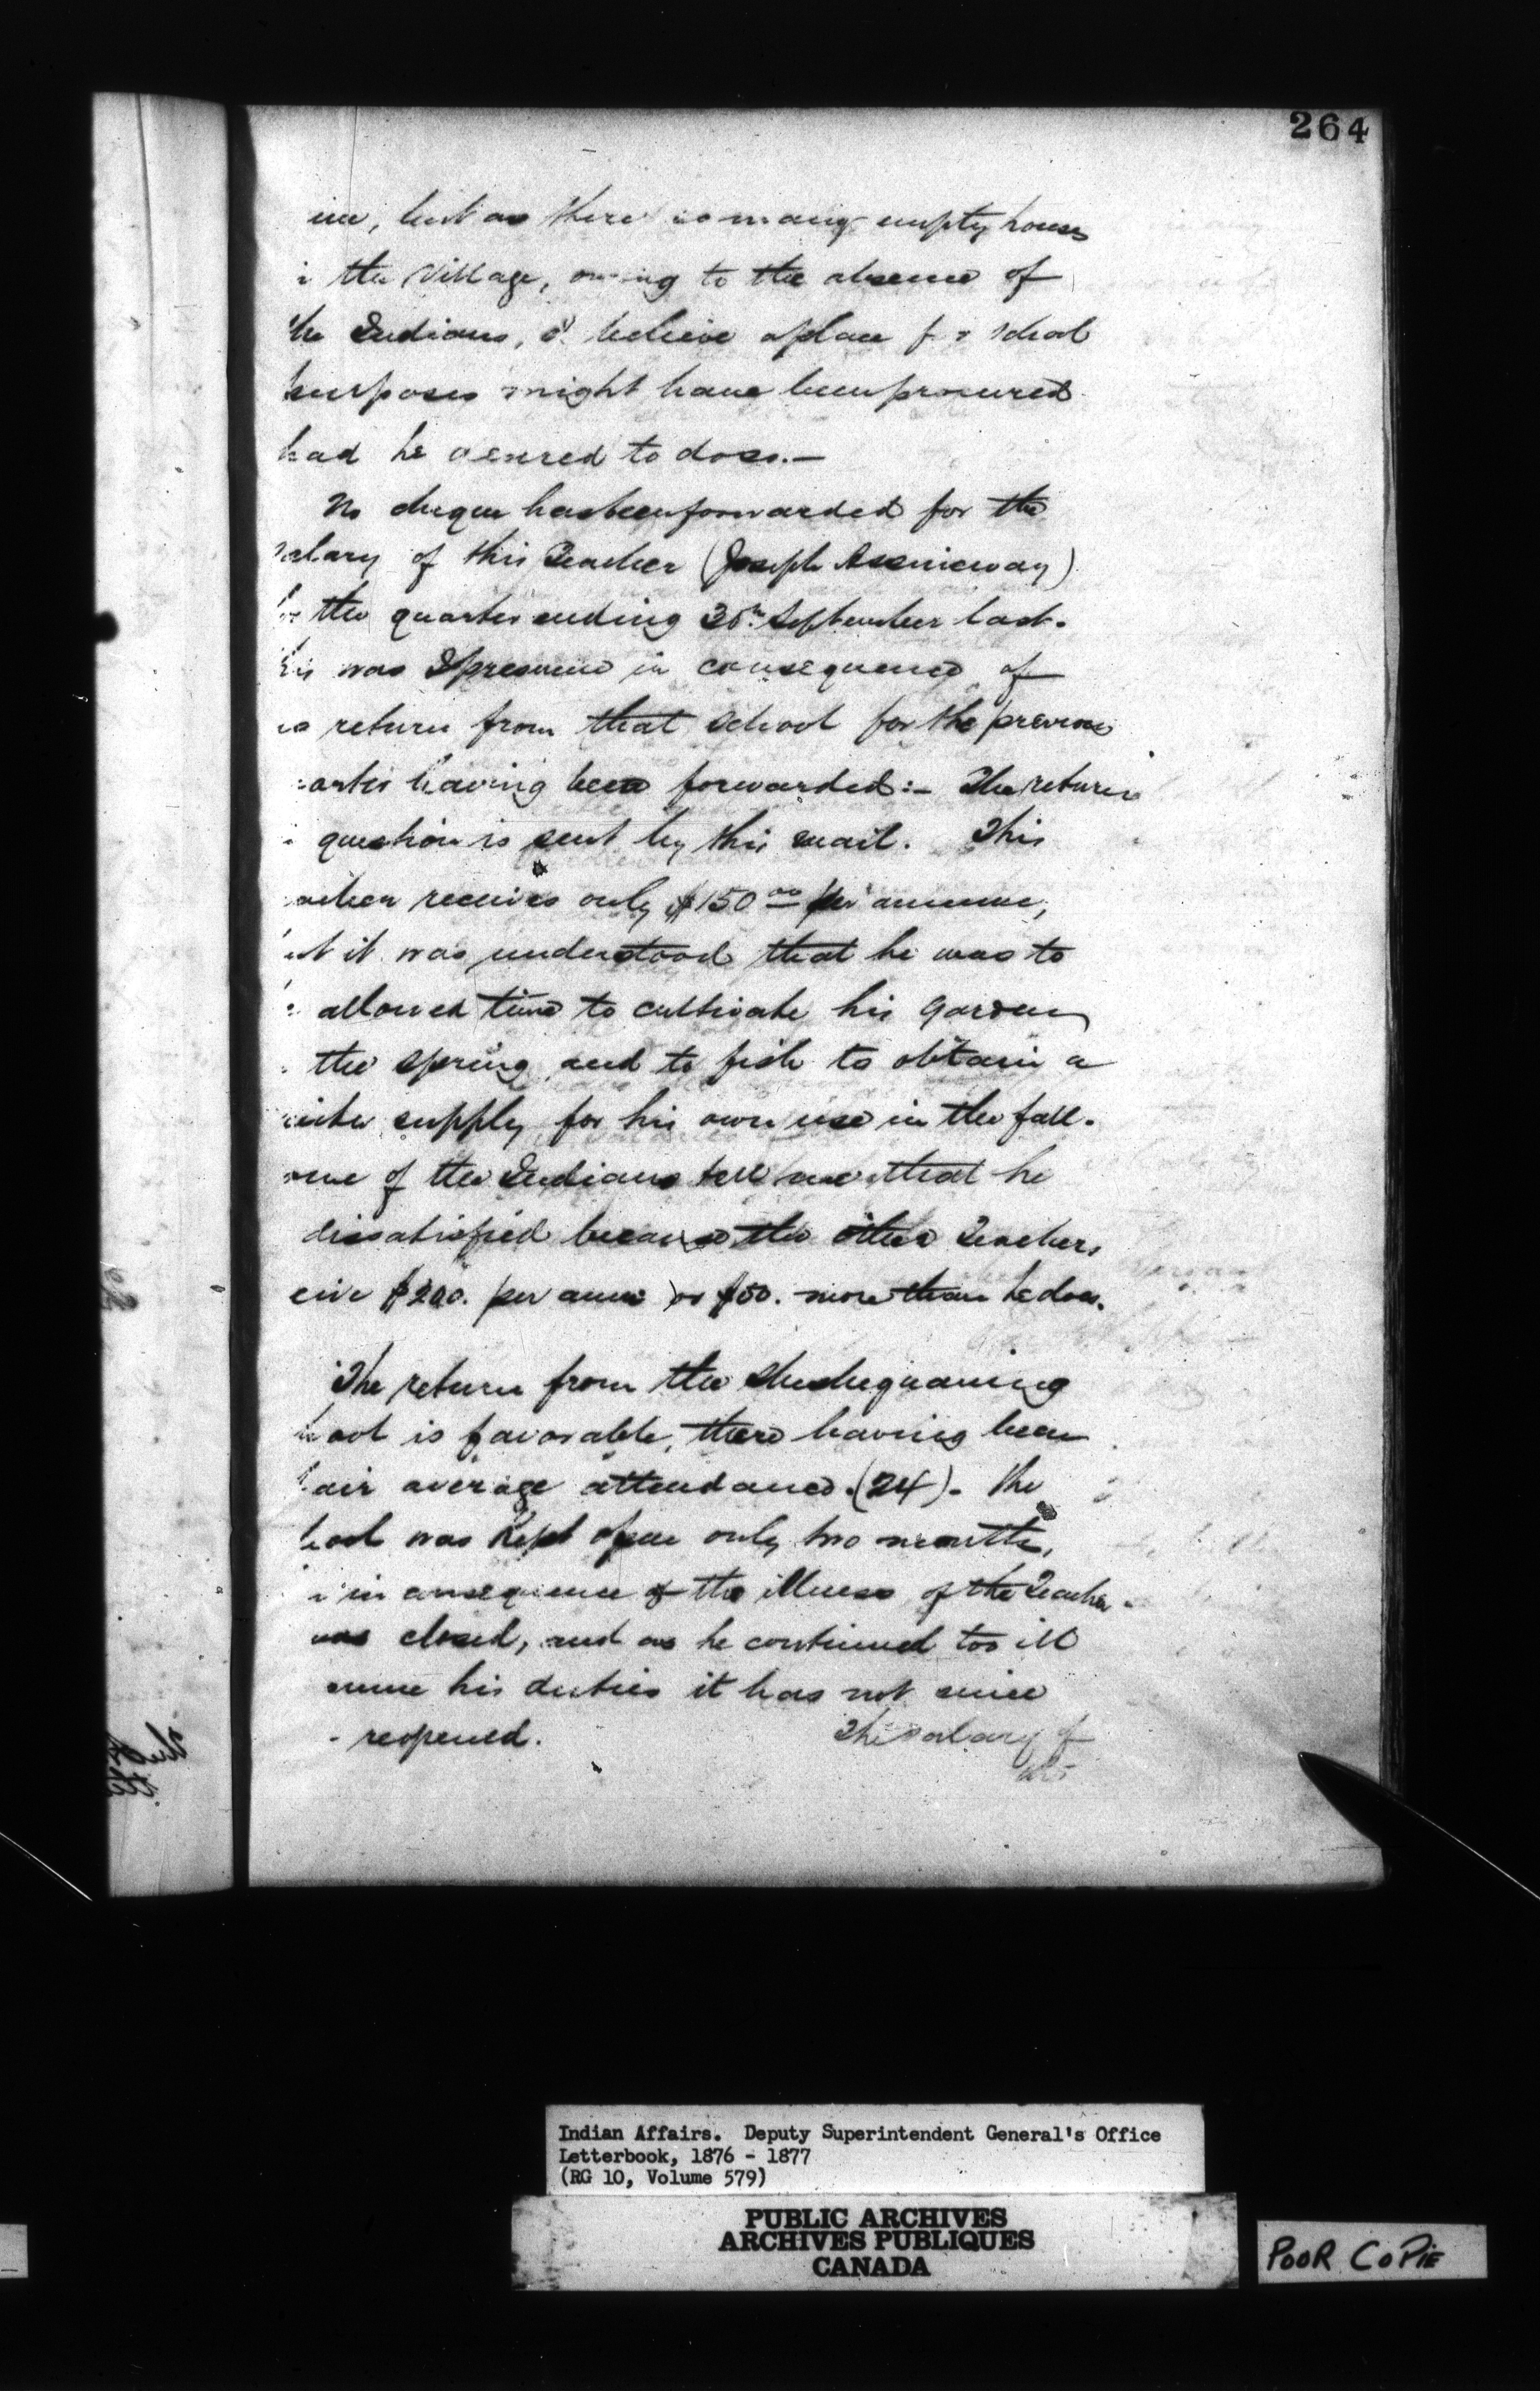 264
but as there is many empty houses
the Village, owing to the absence of
the Indians, I believe a place for school
purposes might have been procured
had he desired to do so.—
No cheque has been forwarded for the
salary of this Teacher (Joseph Assiniway)
the quarter ending 30th September last.
was I presume in consequence of
no return from that school for the previous
having been forwarded:— The return
question is sent by this mail. This
receives only $150.00 per annum,
it was understood that he was to
allowed time to cultivate his garden
the spring and to fish to obtain a
supply for his own use in the fall.
of the Indians tell me that he
dissatisfied because the other Teachers
$200. per ann or $50. more than he does.
The return from the Sheshegwaning
is favorable, there having been
fair average attendance (24). The
was kept open only two months,
in consequence of the illness of the Teacher
was closed, and as he continued too ill
his duties it has not since
reopened.
The salary of
Indian Affairs. Deputy Superintendent General's Office
Letterbook, 1876 - 1877
(RG 10, Volume 579)
PUBLIC ARCHIVES
ARCHIVES PUBLIQUES
CANADA
POOR COPIE